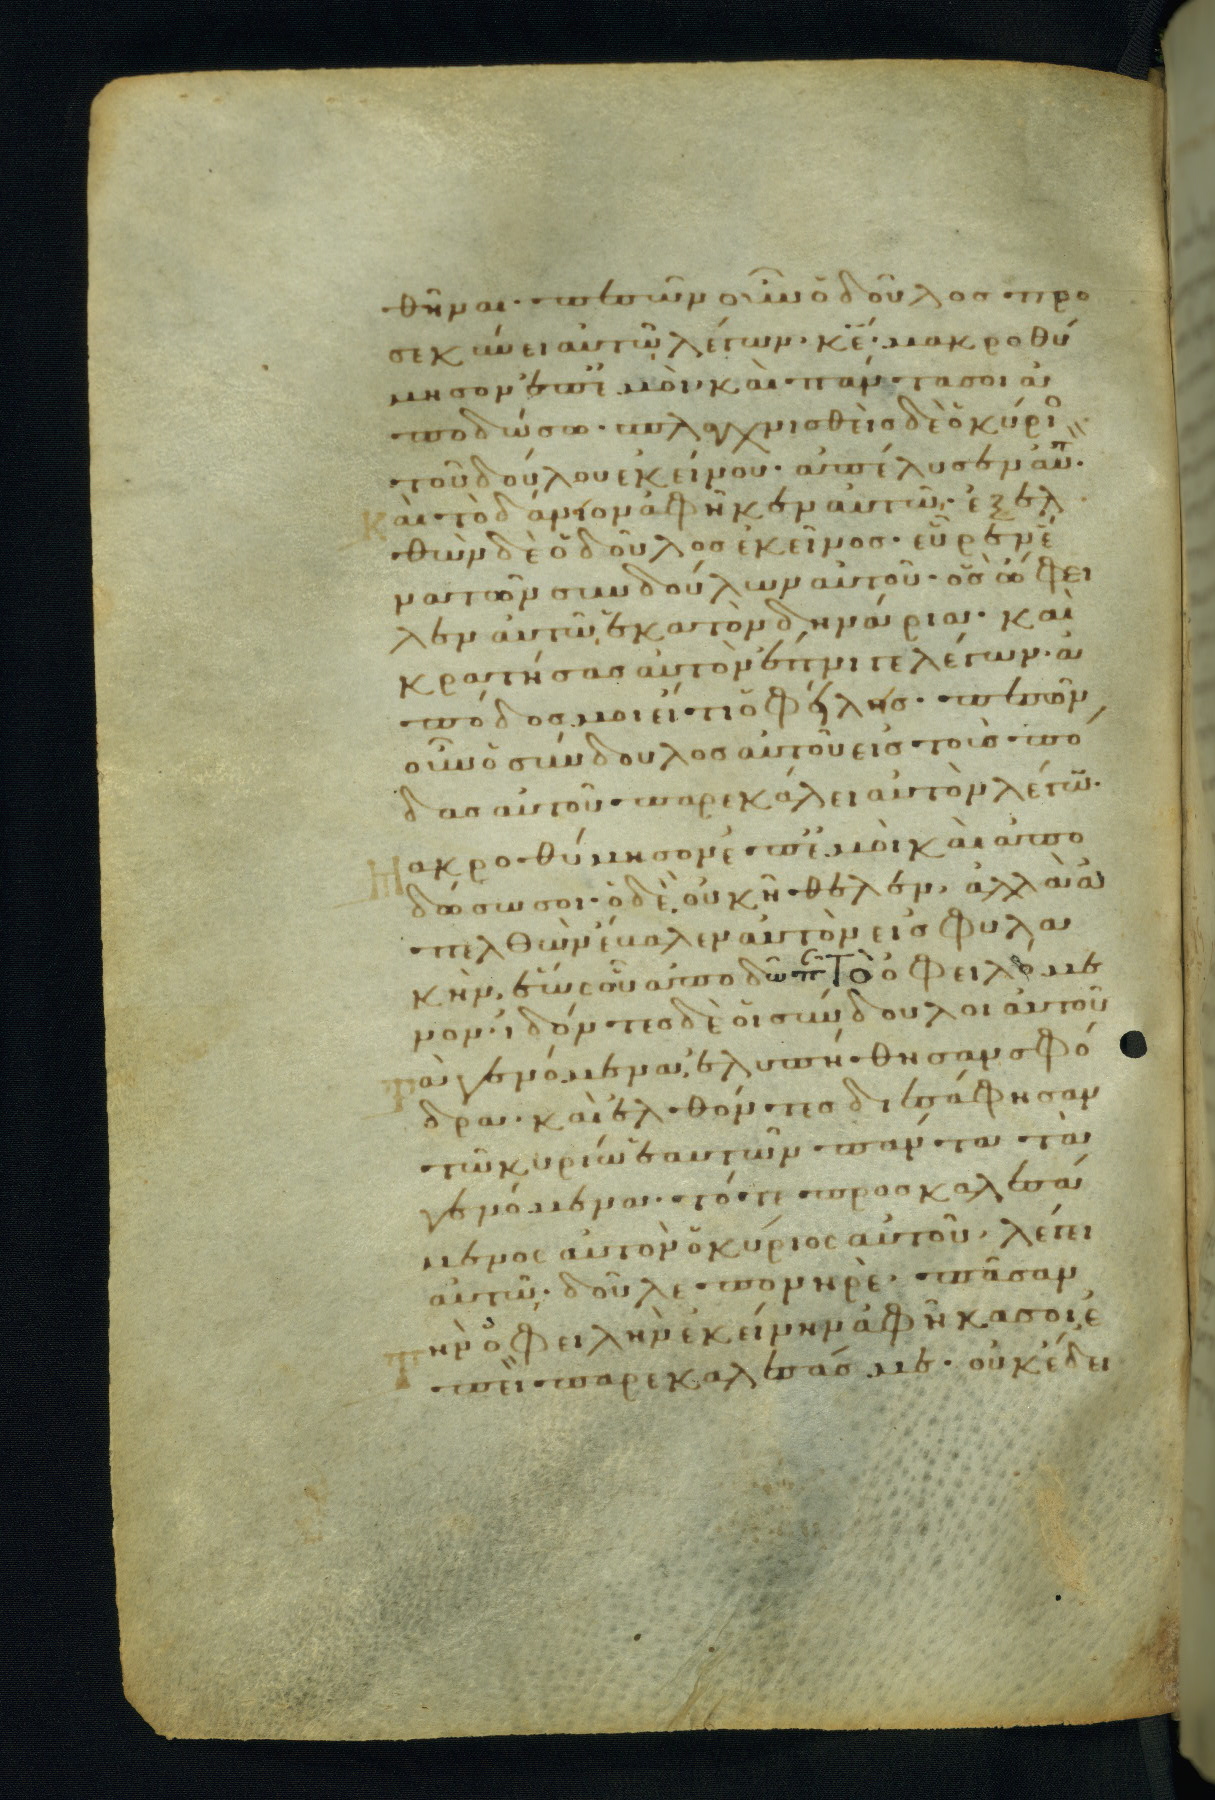 θῆναι· πεσὼν οὖν ὁ δοῦλος προ
σεκύνει αυτῶ λέγων· κ̅ε̅· μακροθύ
μησον ἐπ' ἐμοὶ καὶ πάντα σοι ἀ
ποδώσω· σπλαγχνισθεὶς δὲ ὁ κύριο
τοῦ δούλου εκείνου· ἀπέλυσεν αυτ·
Καὶ τὸ δάνιον ἀφῆκεν ἀυτῶ· ἐξελ
θὼν δὲ ὁ δοῦλος ἐκεῖνος· εὗρεν ἕ
να τῶν συνδούλων αυτοῦ· ὃς ὤφει
λεν ἀυτῶ ἑκατὸν δηνάρια· καὶ
κρατήσας αυτὸν ἔπνιγε λέγων· ἀ
πόδος μοι εἴ τι ὀφείλης· πεσὼν
οὖν ὁ σύνδουλος αυτοῦ εις τοὺς πό
δας αυτοῦ παρεκάλει αυτὸν λέγω̅·
Μακροθύμησον ἐπ' ἐμοὶ καὶ ἀπο
δώσω σοι· ὁ δὲ οὐκ ἤθελεν, ἀλλὰ ἀ
πελθὼν ἔβαλεν αυτὸν εἰς φυλα
κὴν, ἕως οὗ αποδῶ π̅ Τὸ ὀφειλόμε
νον· ἰδόντες δὲ οἱ σύνδουλοι ἀυτοῦ
Τὰ γενόμενα, ἐλυπήθησαν σφό
δρα· καὶ ἐλθόντες διεσάφησαν
τῶ κυρίω ἑαυτῶν πάντα τὰ
γενόμενα· τότε προσκαλεσά
μενος αυτὸν ὁ κύριος αυτοῦ, λέγει
αυτῶ· δοῦλε πονηρὲ· πᾶσαν
Τὴν ὀφειλὴν ἐκείνην ἀφῆκα σοι ἐ
πεὶ παρεκαλεσάς με· οὐκ ἔδει